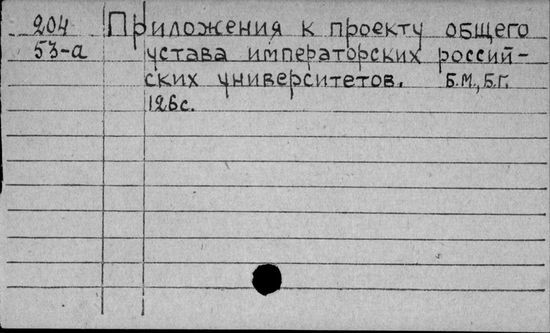 204 Приложения к проекту общего
53-а устава императорских россий-
ских университетов. Б.М., Б.Г.
126с.